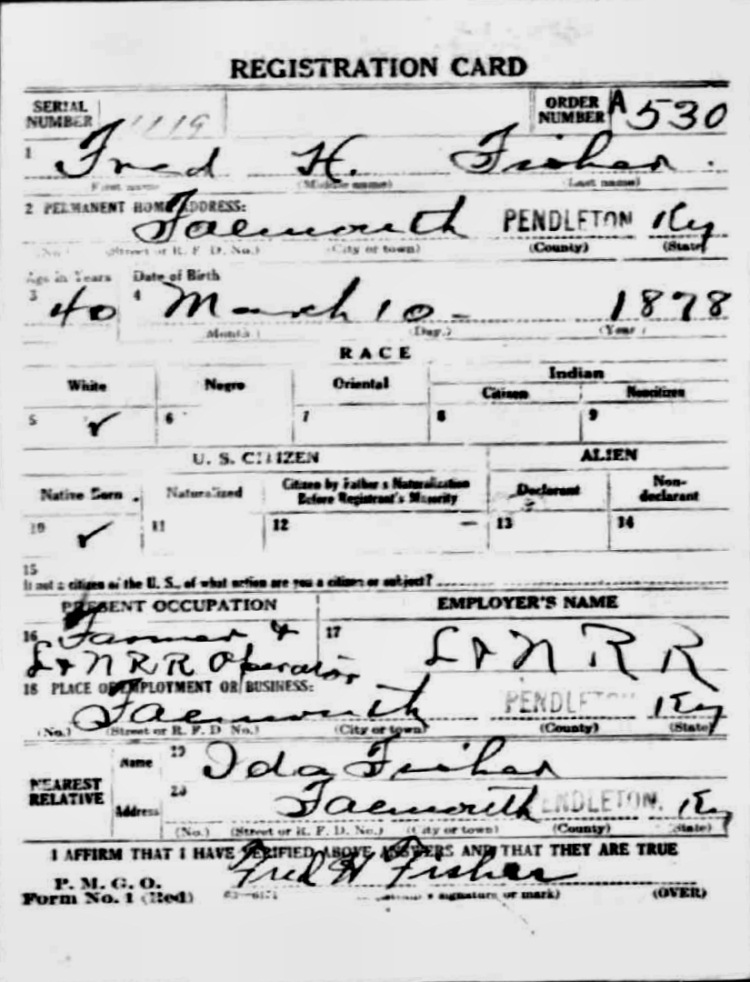 REGISTRATION CARD
SERIAL NUMBER 1119 ORDER NUMBER A 530
1 Fred H. Fisher.
First name (Middle name) (Last name)
2 PERMANENT HOME ADDRESS: Falmouth PENDLETON Ky
(No.) (Street or R. F. D. No.) (City or town) (County) (State)
Age in Years Date of Birth
3 40 4 March 10 - 1878
(Month) (Day.) (Year)
RACE
White Negro Oriental Indian
Citizen Noncitizen
5 ✓ 6 7 8 9
U. S. CITIZEN ALIEN
Native Born . Naturalized Citizen by Father's Naturalization Before Registrant's Majority Declarant Non-declarant
10 ✓ 11 12 - 13 14
15
If not a citizen of the U. S., of what nation are you a citizen or subject?
PRESENT OCCUPATION EMPLOYER'S NAME
16 Farmer & 17 L & N R R
L & N R R Operator
18 PLACE OF EMPLOYMENT OR BUSINESS:
Falmouth PENDLETON Ky
(No.) (Street or R. F. D. No.) (City or town) (County) (State)
NEAREST RELATIVE Name 19 Ida Fisher
Address 20 Falmouth PENDLETON, Ky
(No.) (Street or R. F. D. No.) (City or town) (County) (State)
I AFFIRM THAT I HAVE VERIFIED ABOVE ANSWERS AND THAT THEY ARE TRUE
P. M. G. O.
Form No. 1 (Red) Fred H Fisher
signature or mark) (OVER)